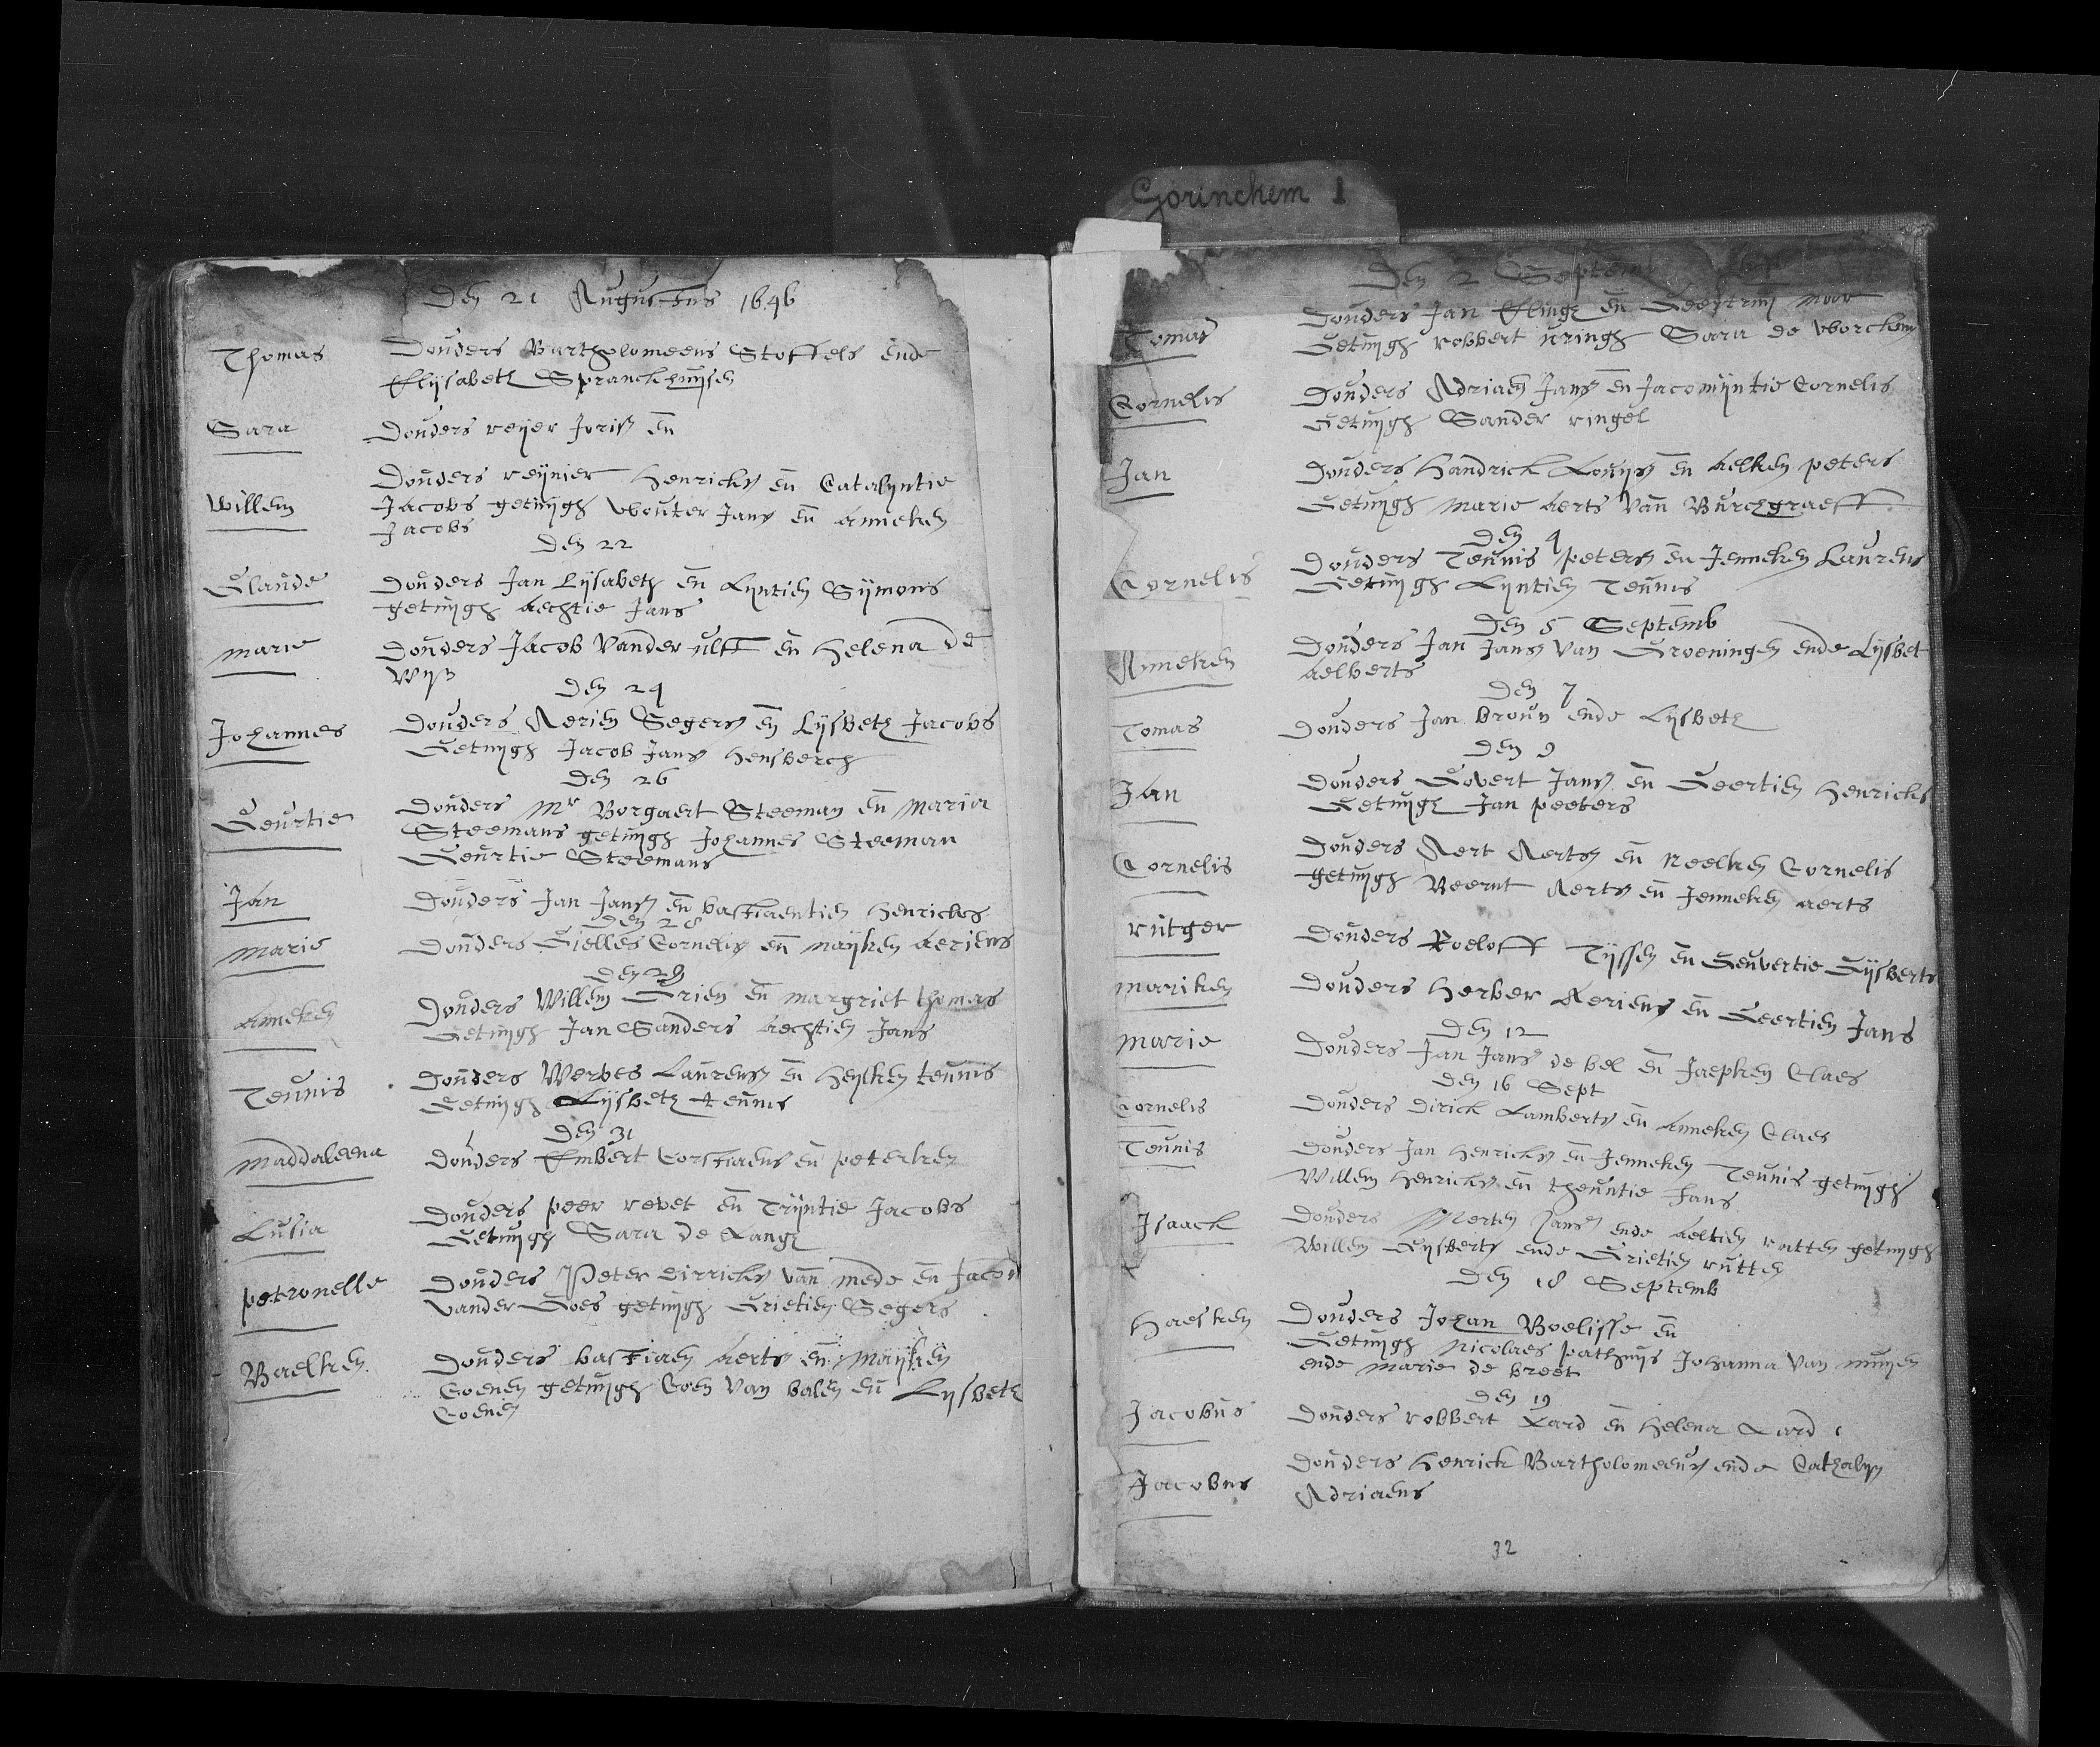 Gorinchem 1
Den 21 Augustus 1646
Thomas
Douders Bartholomeeus Stoffels ende
Elijsabeth Spranckhuijsen
Sara
Douders reijer Joriss en
Willem
Douders reijnier Henricks en Catalijntie
Jacobs getuijgh Wouter Jans en Anneken
Jacobs
Den 22
Claude
Douders Jan Lijsabeth en Lijntien Sijmons
getuijgh Aechtie Jans
Marie
Douders Jacob Vander ulft en Helena de
Wijs
Den 24
Johannes
Douders Aerien Segers en Lijsbeth Jacobs
Getuijgh Jacob Jans Hensberch
Den 26
Geurtie
Douders Mr Borgaert Steeman en Maria
Steemans getuijgh Johannes Steeman
Geurtie Steemans
Jan
Douders Jan Jans en bastiaentien Henricks
Den 28
Marie
Douders Gielles Cornelis en maijken Aeriens
Den 29
Anneken
Douders Willem Grien en margriet thomas
Getuijgh Jan Sanders Aechtien Jans
Teunis
Douders Werbes Laurens en Heijlken teunis
Getuijgh Lijsbeth teunis
Den 31
Maddaleena
Douders Embert Corstiaens en peterken
Lusia
Douders peer revet en Trijntie Jacobs
Getuijgh Sara de Lange
petronelle
Douders Peter Dirricks van mede en Jacob
vander Goes getuijgh Grietien Segers
Baelken
Douders bastiaen Aerts en Maijken
Coenen getuijgh Coen Van balen en Lijsbeth
Coenen
Den 2 Septemb
Tomas
Douders Jan Elingh en Geertruij
Getuijgh robbert uringh Sara de Worckum
Cornelis
Douders Adriaen Jans en Jacomijntie Cornelis
Getuijgh Sander ringel
Jan
Douders Handrick Louijs en Aelken peters
Getuijgh Marie Aerts Van Burchgraeff
Den 4
Cornelis
Douders Teunis peters en Jenneken Laurens
Getuijgh Lijntien Teunis
Den 5 Septemb
Anneken
Douders Jan Jans Van Groeningen ende Lijsbet
Aelberts
Den 7
Tomas
Douders Jan broun ende Lijsbeth
Den 9
Jan
Douders Govert Jans en Geertien Henricks
Getuijgh Jan peeters
Cornelis
Douders Aert Aerts en Neelken Cornelis
getuijgh Beernt Aerts en Jenneken Aerts
rutger
Douders Roeloff Tijssen en Geuvertie Gijsberts
Mariken
Douders Herber Aeriens en Geertien Jans
Den 12
Marie
Douders Jan Jans de bel en Jaepken Claes
Den 16 Sept
Cornelis
Douders Dirick Lamberts en Anneken Claes
Teunis
Douders Jan Henricks en Jenneken Teunis getuijgh
Willem Henricks en theuntie Jans
Isaack
Douders Merten Jansen ende Aeltien rutten getuijgh
Willem Gijsberts ende Grietien rutten
Den 18 Septemb
Haesken
Douders Johan Boelisse en
Getuijgh Nicolaes pathuijs Johanna Van muijen
ende Marie de breet
Den 19
Jacobus
Douders robbert Lard en Helena Lard
Jacobus
Douders Henrick Bartholomeeus ende Cathalijn
Adriaens
32